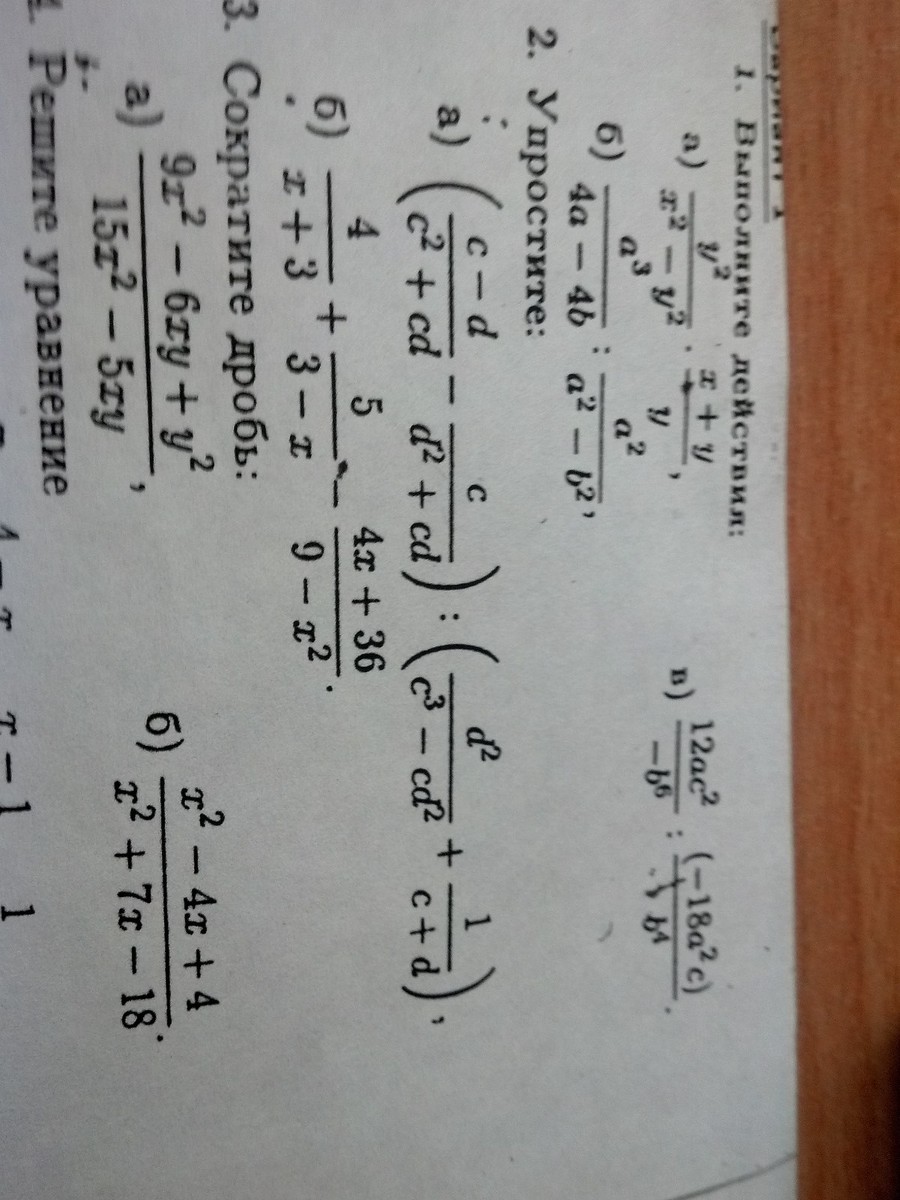 1. Выполните действия:
а) y²/(x² − y²) · (x + y)/y,
в) 12ac²/(−b⁶) : (−18a²c)/b⁴.
б) a³/(4a − 4b) : a²/(a² − b²),
2. Упростите:
а) ((c − d)/(c² + cd) − c/(d² + cd)) : (d²/(c³ − cd²) + 1/(c + d)),
б) 4/(x + 3) + 5/(3 − x) − (4x + 36)/(9 − x²).
3. Сократите дробь:
а) (9x² − 6xy + y²)/(15x² − 5xy),
б) (x² − 4x + 4)/(x² + 7x − 18).
Решите уравнение
x − 1 1